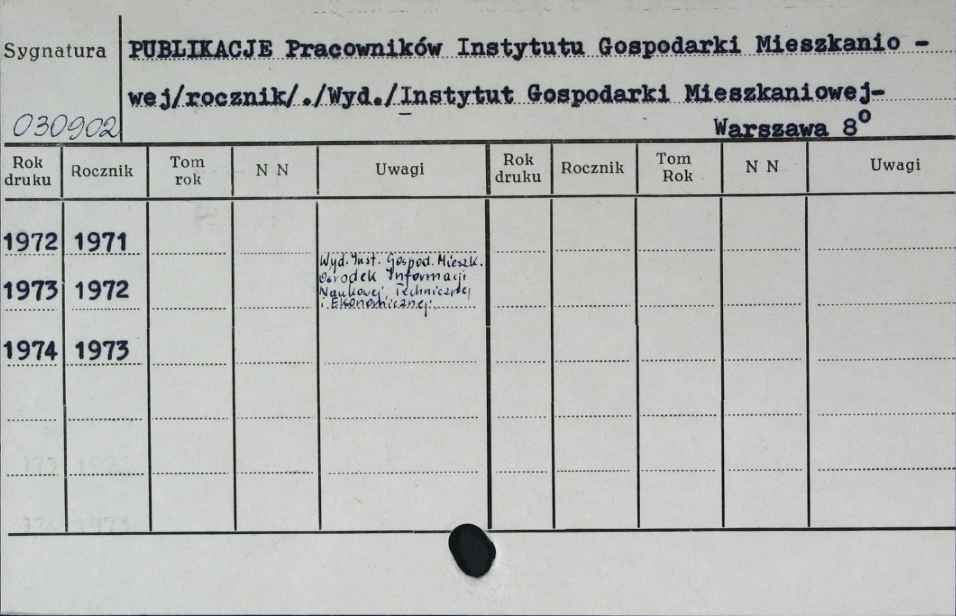 Sygnatura PUBLIKACJE Pracowników Instytutu Gospodarki Mieszkanio -
wej/rocznik/./Wyd./Instytut Gospodarki Mieszkaniowej-
030902 Warszawa 8º
Rok druku Rocznik Tom rok N N Uwagi Rok druku Rocznik Tom Rok N N Uwagi
1972 1971
Wyd. Inst. Gospod. Mieszk.
Ośrodek Informacji
1973 1972 Naukowej Technicznej
i Ekonomicznej.
1974 1973